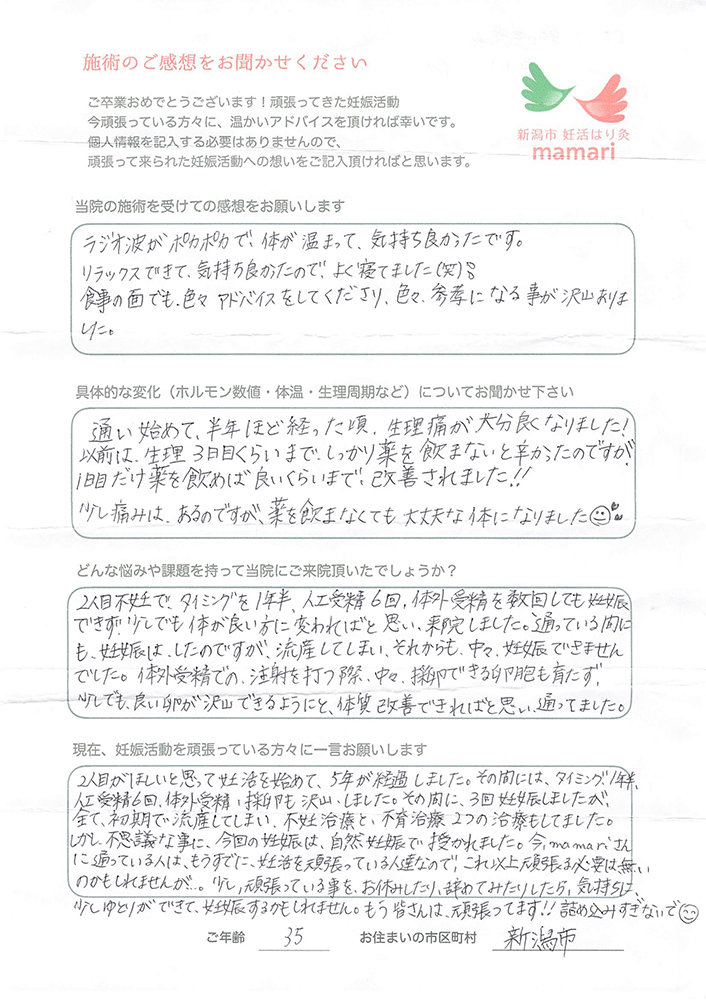 施術のご感想をお聞かせください
ご卒業おめでとうございます！頑張ってきた妊娠活動
今頑張っている方々に、温かいアドバイスを頂ければ幸いです。
個人情報を記入する必要はありませんので、
頑張って来られた妊娠活動への想いをご記入頂ければと思います。
新潟市 妊活はり灸
mamari
当院の施術を受けての感想をお願いします
ラジオ波がポカポカで、体が温まって、気持ち良かったです。
リラックスできて、気持ち良かったので、よく寝てました(笑)
食事の面でも、色々アドバイスをしてくださり、色々、参考になる事が沢山ありま
した。
具体的な変化（ホルモン数値・体温・生理周期など）についてお聞かせ下さい
通い始めて、半年ほど経った頃、生理痛が大分良くなりました！
以前は、生理3日目くらいまで、しっかり薬を飲まないと辛かったのですが、
1日目だけ薬を飲めば良いくらいまで、改善されました！！
少し痛みは、あるのですが、薬を飲まなくても大丈夫な体になりました
どんな悩みや課題を持って当院にご来院頂いたでしょうか？
2人目不妊で、タイミングを1年半、人工受精6回、体外受精を数回しても妊娠
できず、少しでも体が良い方に変わればと思い、来院しました。通っている間に
も、妊娠は、したのですが、流産してしまい、それからも、中々、妊娠できません
でした。体外受精での、注射を打つ際、中々、採卵できる卵胞も育たず、
少しでも、良い卵が沢山できるようにと、体質改善できればと思い、通ってました。
現在、妊娠活動を頑張っている方々に一言お願いします
2人目がほしいと思って妊活を始めて、5年が経過しました。その間には、タイミング1年半、
人工受精6回、体外受精・採卵も沢山しました。その間に、3回妊娠しましたが、
全て、初期で流産してしまい、不妊治療と、不育治療2つの治療もしてました。
しかし、不思議な事に、今回の妊娠は、自然妊娠で授かれました。今、mamariさん
に通っている人は、もうすでに、妊活を頑張っている人達なので、これ以上頑張る必要は無い
のかもしれませんが…。少し、頑張っている事を、お休みしたり、辞めてみたりしたら、気持ちに、
少しゆとりができて、妊娠するかもしれません。もう皆さんは、頑張ってます！！詰め込みすぎないで
ご年齢 35 お住まいの市区町村 新潟市